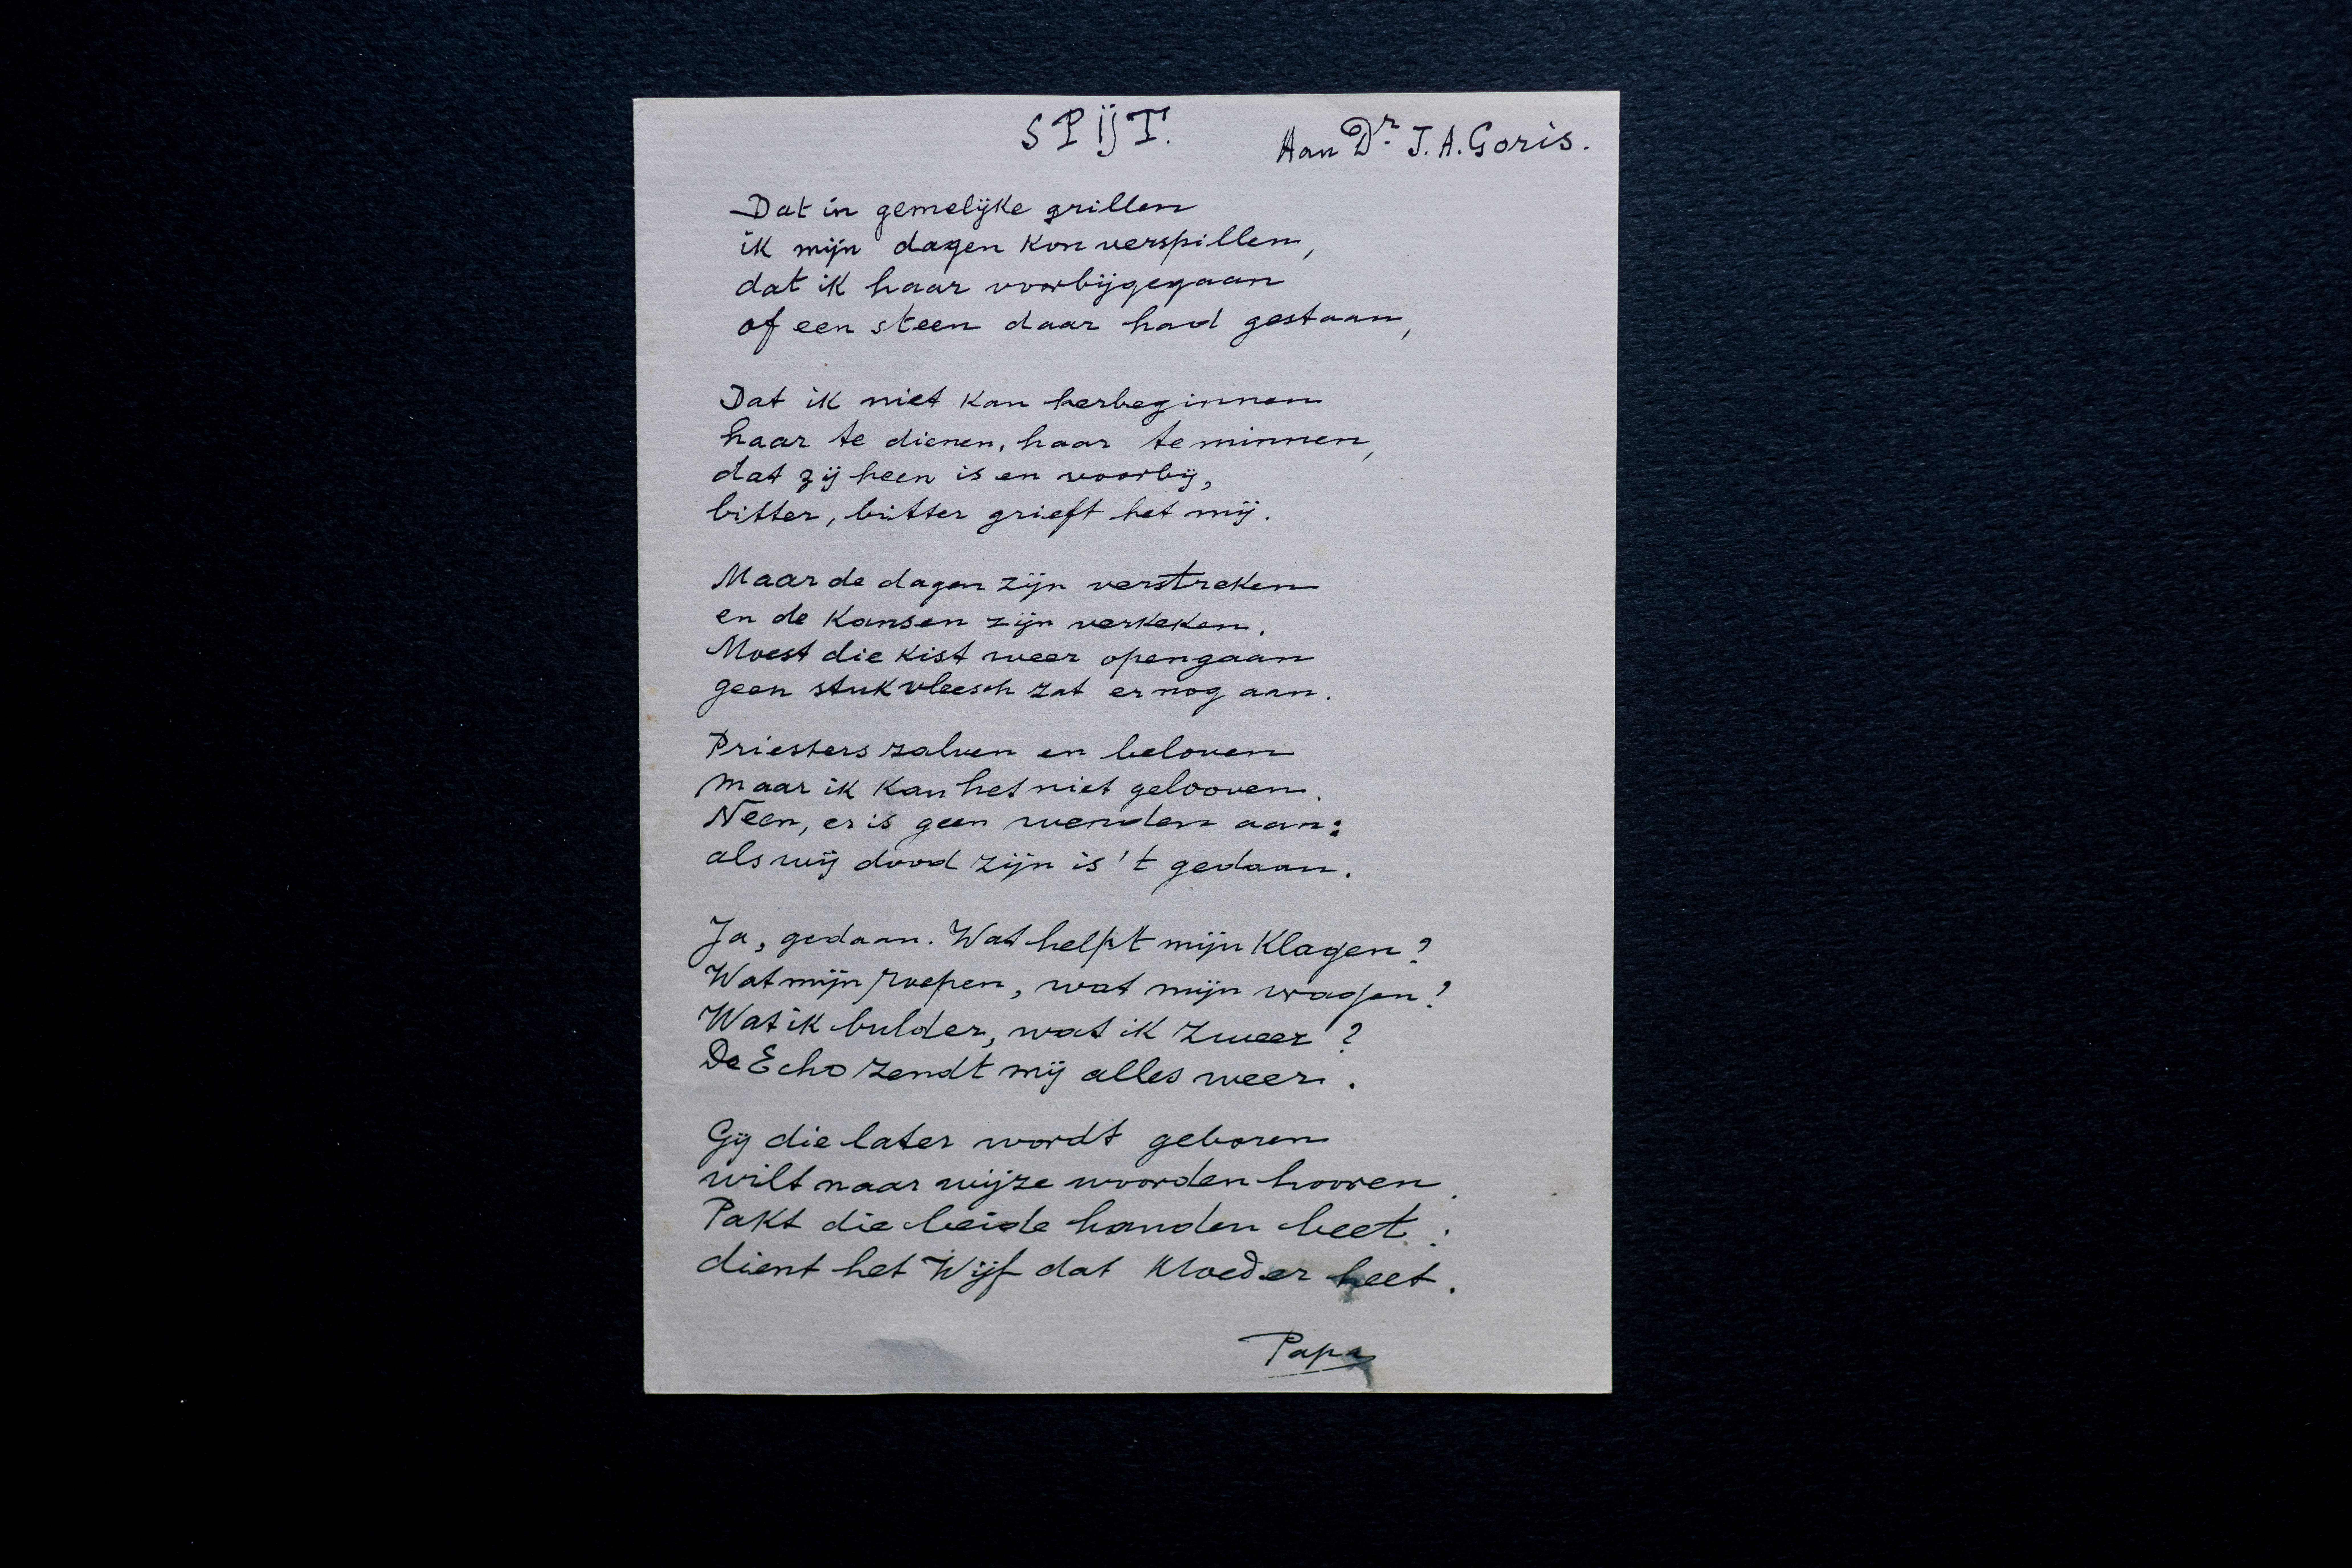 SPIJT.
Aan Dr. J. A. Goris.
Dat in gemelijke grillen
ik mijn dagen kon verspillen,
dat ik haar voorbijgegaan
of een steen daar had gestaan,
Dat ik niet kan herbeginnen
haar te dienen, haar te minnen,
dat zij heen is en voorbij,
bitter, bitter grieft het mij.
Maar de dagen zijn verstreken
en de kansen zijn verkeken.
Moest die kist weer opengaan
geen stuk vleesch zat er nog aan.
Priesters zalven en beloven
maar ik kan het niet gelooven.
Neen, er is geen wenden aan:
als wij dood zijn is 't gedaan.
Ja, gedaan. Wat helpt mijn klagen?
Wat mijn roepen, wat mijn wagen?
Wat ik bulder, wat ik zweer?
De Echo zendt mij alles weer.
Gij die later wordt geboren
wilt naar wijze woorden hooren.
Pakt die beide handen beet:
dient het Wijf dat Moeder heet.
Papa